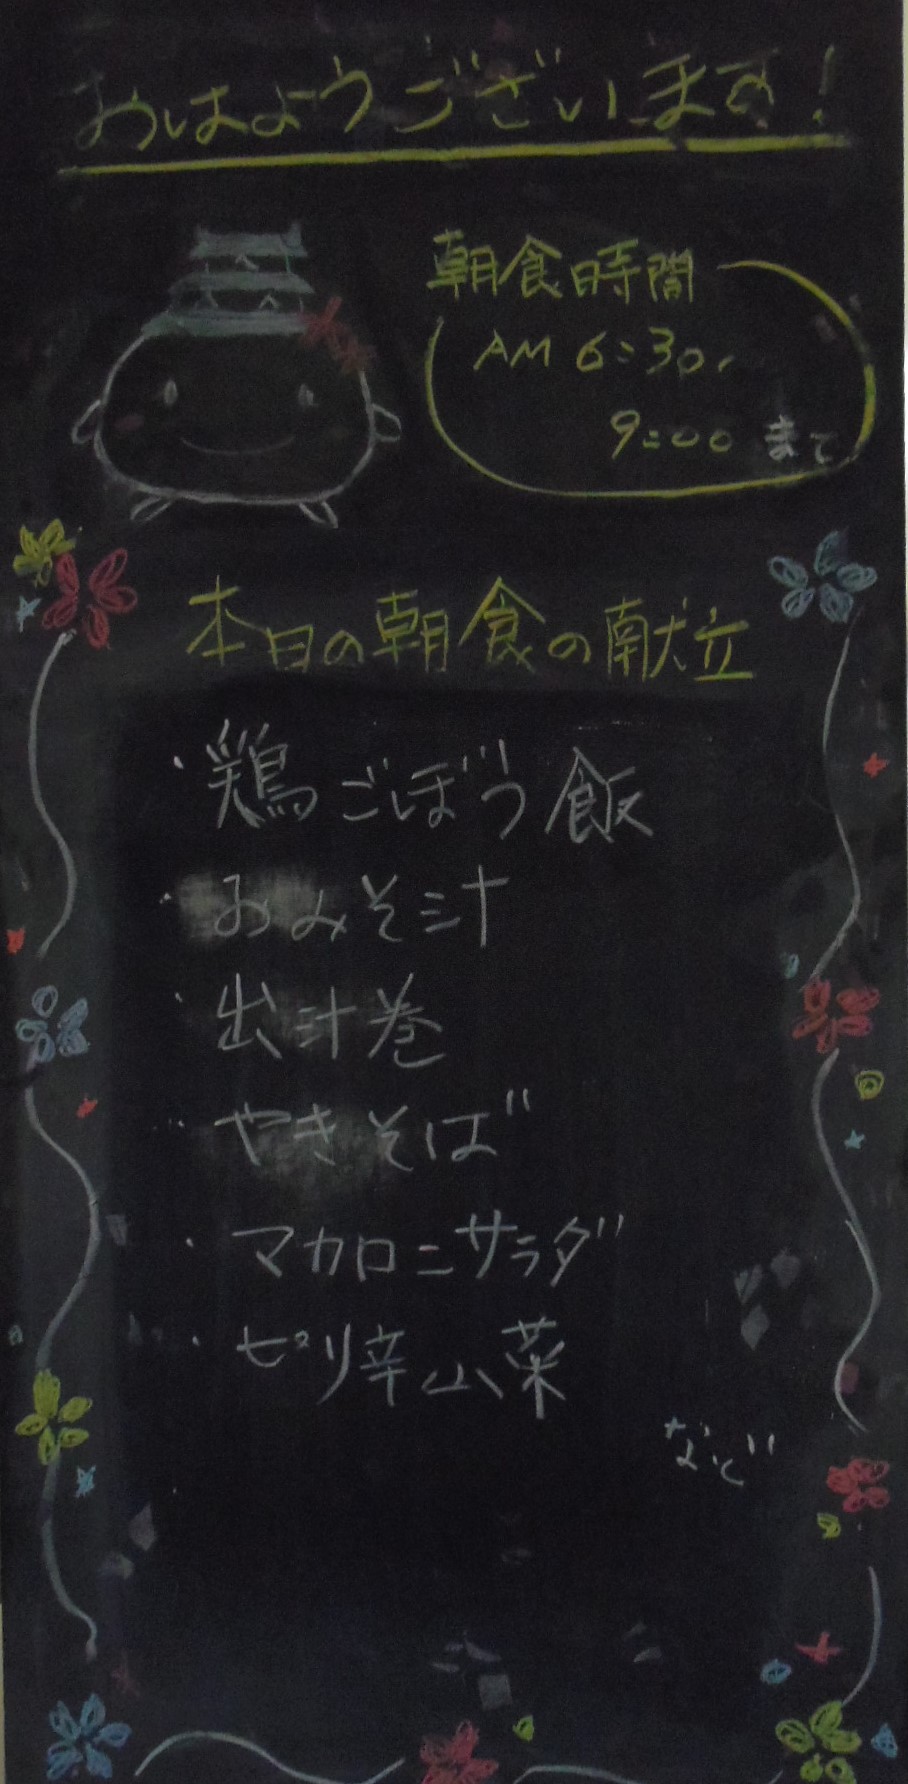 おはようございます!
朝食時間
AM 6:30~
9:00 まで
本日の朝食の献立
・鶏ごぼう飯
・おみそ汁
・出汁巻
・やきそば
・マカロニサラダ
・ピリ辛山菜
など